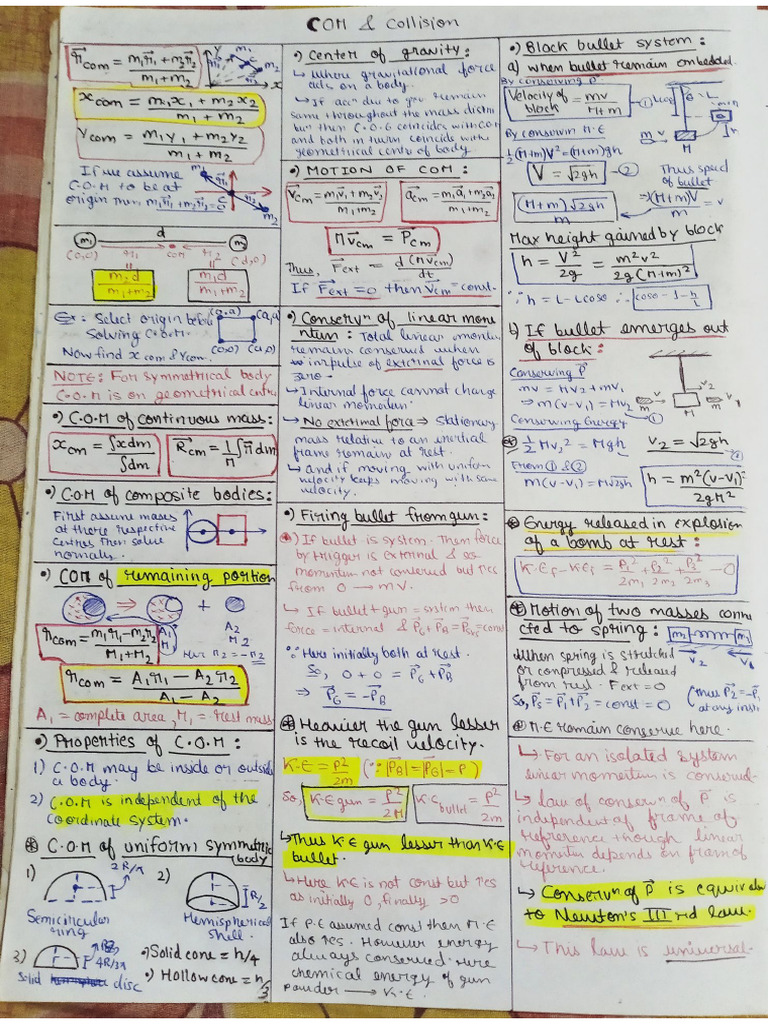 COM & Collision
r⃗com = m₁r⃗₁ + m₂r⃗₂ / m₁ + m₂
xcom = m₁x₁ + m₂x₂ / m₁ + m₂
Ycom = m₁y₁ + m₂y₂ / m₁ + m₂
If we assume
C.O.M to be at
origin then m₁r⃗₁ + m₂r⃗₂ = 0
m₁ d m₂
(0,0) r₁ COM r₂ (d,0)
m₂d / m₁+m₂
m₁d / m₁+m₂
Ex: Select origin before
solving C.O.M.
Now find x com & Ycom.
(0,a) (a,a)
(0,0) (a,0)
NOTE: For symmetrical body
C.O.M is on geometrical centre
•) C.O.M of continuous mass:
xcm = ∫xdm / ∫dm
R⃗cm = 1/M ∫r⃗ dm
•) C.O.M of composite bodies:
First assume masses
at there respective
centres then solve
normally.
•) COM of remaining portion
r⃗com = m₁r₁ - m₂r₂ / M₁ + M₂
A₁ M₁
A₂ M₂
Here r₂ = -r₂
rcom = A₁r₁ - A₂r₂ / A₁ - A₂
A₁ = complete area, M₁ = rest mass
•) Properties of C.O.M:
1) C.O.M may be inside or outside
a body.
2) C.O.M is independent of the
coordinate system.
⊛ C.O.M of uniform symmetric
body
1) 2R/π
2) R/2
Semicircular
ring
Hemispherical
shell.
3) 4R/3π
solid disc
•) Solid cone = h/4
•) Hollow cone = h/3
•) Center of gravity:
↳ Where gravitational force
acts on a body.
↳ If accⁿ due to gav remain
same throughout the mass distri
bun then C.O.G coincides with COM
and both in turn coincide with
geometrical centre of body.
•) MOTION OF COM:
v⃗cm = m₁v⃗₁ + m₂v⃗₂ / m₁+m₂
a⃗cm = m₁a⃗₁ + m₂a⃗₂ / m₁+m₂
Mv⃗cm = P⃗cm
Thus, F⃗ext = d(mvcm) / dt
If F⃗ext = 0 then v⃗cm = const.
•) Conservⁿ of linear mome
ntum: Total linear momentum
remains conserved when
impulse of external force is
zero.
↳ Internal force cannot change
linear momentum.
↳ No external force ⇒ stationary
mass relative to an inertial
frame remain at rest.
↳ and if moving with uniform
velocity keeps moving with same
velocity.
•) Firing bullet from gun:
•) If bullet is system. Then force
by trigger is external & so
momentum not conserved but ↑ces
from 0 → mV.
↳ If bullet + gun = system then
force = internal & P⃗G + P⃗B = P⃗sys = const
∵ Here initially both at rest.
So, 0 + 0 = P⃗G + P⃗B
⇒ P⃗G = -P⃗B
⊛ Heavier the gun lesser
is the recoil velocity.
K.E = P²/2m (∵ |P⃗B| = |P⃗G| = P)
So, K.E gun = P²/2M
K.E bullet = P²/2m
↳ Thus K.E gun lesser than K.E
bullet.
↳ Here K.E is not const but ↑ces
as initially 0, finally > 0
If P.E assumed const then M.E
also ↑es. However energy
always conserved. Here
chemical energy of gun
powder → K.E.
•) Block bullet system:
a) when bullet remain embedded.
By conserving P⃗
Velocity of
block = mv / M+m
By conservin M.E
½(M+m)V² = (M+m)gh
V = √2gh —②
Thus speed
of bullet
⇒ (M+m)V / m = v
(M+m)√2gh / m
Max height gained by block
h = V²/2g = m²v² / 2g(M+m)²
∵ h = L - Lcosθ ∴ cosθ = 1 - h/L
b) If bullet emerges out
of block:
Conserving P⃗
mv = MV₂ + mv₁
⇒ m(v-v₁) = MV₂
Conserving Energy
½Mv₂² = Mgh
v₂ = √2gh
From ① & ②
m(v-v₁) = M√2gh
h = m²(v-v₁)² / 2gM²
⊛ Energy released in explosion
of a bomb at rest:
K.Ef - K.Ei = P₁²/2m₁ + P₂²/2m₂ + P₃²/2m₃ - 0
⊛ Motion of two masses conne
cted to spring:
When spring is stretched
or compressed & released
from rest. Fext = 0
So, P⃗s = P⃗₁ + P⃗₂ = const = 0
(thus P⃗₂ = -P⃗₁
at any inst)
⊛ M.E remain conserve here.
↳ For an isolated system
linear momentum is conserved.
↳ law of conservⁿ of P⃗ is
independent of frame of
reference though linear
momentum depends on frame of
reference.
↳ Conservⁿ of P⃗ is equivalent
to Newton's III rd law.
↳ This law is universal.